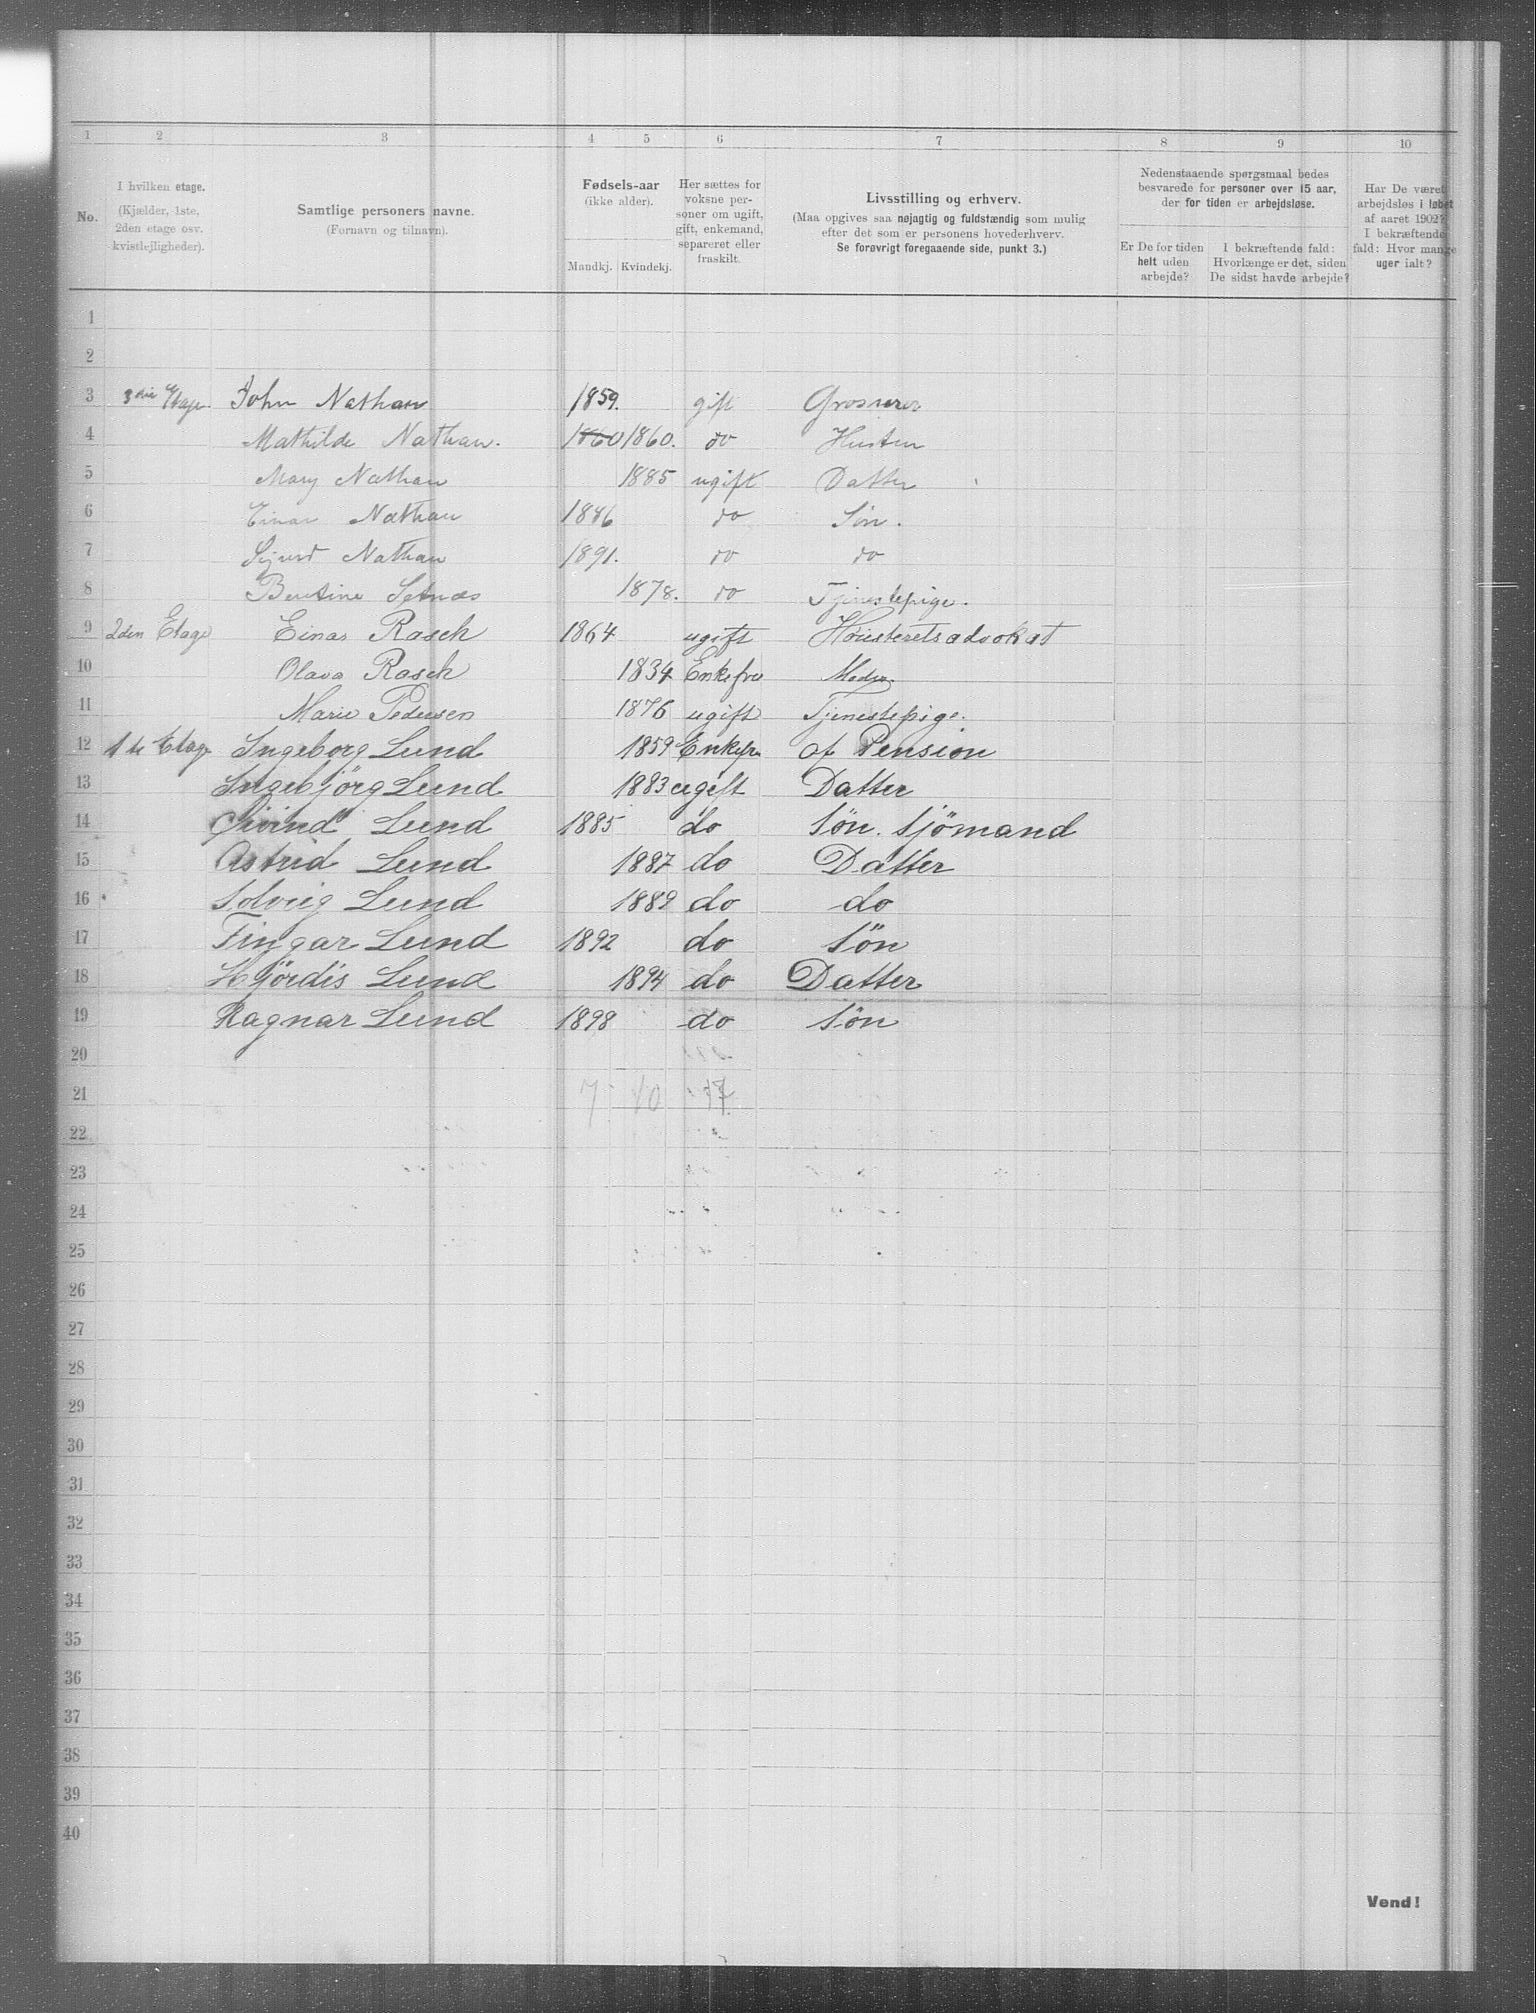 1 2 3 4 5 6 7 8 9 10
No.
I hvilken etage.
(Kjælder, 1ste,
2den etage osv.
kvistlejligheder).
Samtlige personers navne.
(Fornavn og tilnavn).
Fødsels-aar
(ikke alder).
Mandkj. Kvindekj.
Her sættes for
voksne per-
soner om ugift,
gift, enkemand,
separeret eller
fraskilt.
Livsstilling og erhverv.
(Maa opgives saa nøjagtig og fuldstændig som mulig
efter det som er personens hovederhverv.
Se forøvrigt foregaaende side, punkt 3.)
Nedenstaaende spørgsmaal bedes
besvarede for personer over 15 aar,
der for tiden er arbejdsløse.
Er De for tiden
helt uden
arbejde?
I bekræftende fald:
Hvorlænge er det, siden
De sidst havde arbejde?
Har De været
arbejdsløs i løbet
af aaret 1902?
I bekræftende
fald: Hvor mange
uger ialt?
1
2
3 3die Etage John Nathan 1859. gift Grosserer
4 Mathilde Nathan. 1860 1860. do Hustru
5 Mary Nathan 1885 ugift Datter
6 Einar Nathan 1886 do Søn.
7 Sigurd Nathan 1891. do do
8 Berntine Setnæs 1878. do Tjenestepige.
9 2den Etage Einar Rasch 1864 ugift Høiesteretsadvokat
10 Olava Rasch 1834 Enkefru Moder
11 Marie Pedersen 1876 ugift Tjenestepige.
12 1ste Etage Ingeborg Lund 1859 Enkefr af Pension
13 Ingebjörg Lund 1883 ugift Datter
14 Øivind Lund 1885 do Sön. Sjömand
15 Astrid Lund 1887 do Datter
16 Solveig Lund 1889 do do
17 Fingar Lund 1892 do Sön
18 Hjördis Lund 1894 do Datter
19 Ragnar Lund 1898 do Sön
20
21 7 10 17
22
23
24
25
26
27
28
29
30
31
32
33
34
35
36
37
38
39
40
Vend!